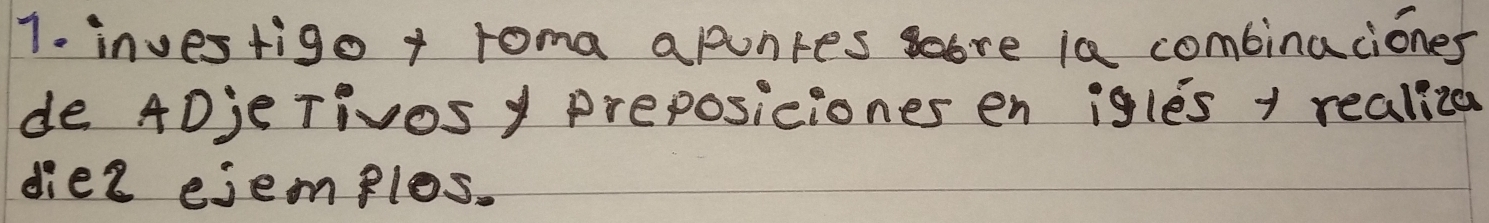 1. investigo y toma apuntes sobre la combinaciónes
de ADjeTivos y preposiciones en iglés y realiza
diez ejemplos.